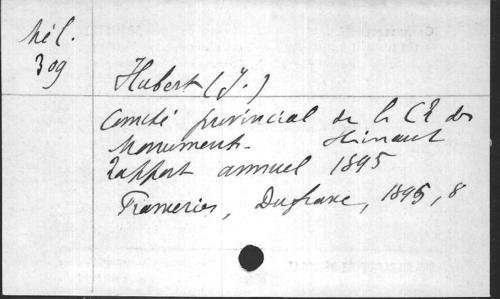 Mél.
309
Hubert (J.)
Comité provincial de la CR des
Monuments. Hainaut
Rapport annuel 1895
Frameries, Dufrane, 1895, 8